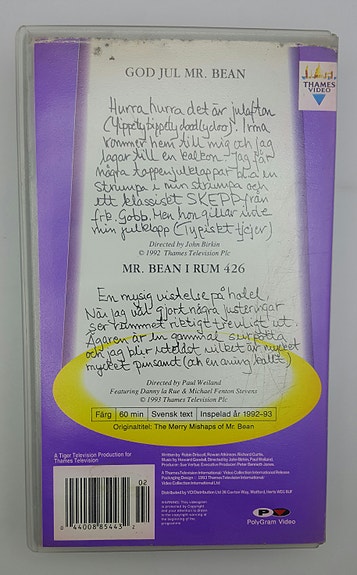 GOD JUL MR. BEAN
THAMES
VIDEO
Hurra hurra det är julafton
(Yippety bippety doodly doo). Irma
kommer hem till mig och jag
lagar till en kalkon. Jag får
några toppenjulklappar bl.a en
strumpa i min strumpa och
ett klassiskt SKEPP från
frk. Gobb. Men hon gillar inte
min julklapp (Typiskt tjejer)
Directed by John Birkin
© 1992 Thames Television Plc
MR. BEAN I RUM 426
En mysig vistelse på hotel.
När jag väl gjort några justeringar
ser rummet riktigt trevligt ut.
Ägaren är en gammal surpotta
och jag blir utelåst vilket är mycket
mycket pinsamt (och en aning kallt)
Directed by Paul Weiland
Featuring Danny la Rue & Michael Fenton Stevens
© 1993 Thames Television Plc
Färg 60 min Svensk text Inspelad år 1992-93
Originaltitel: The Merry Mishaps of Mr. Bean
A Tiger Television Production for
Thames Television
Written by Robin Driscoll, Rowan Atkinson, Richard Curtis.
Music by Howard Goodall, Directed by John Birkin, Paul Weiland.
Producer: Sue Vertue. Executive Producer: Peter Bennett-Jones
A Thames Television International / Video Collection International Release
Packaging Design © 1993 Thames Television International /
Video Collection International Ltd
Distributed by VCI Distribution Ltd 36 Caxton Way, Watford, Herts WD1 8UF
02
2 44008 85443
WARNING: This videogram
is protected by Copyright
PolyGram Video